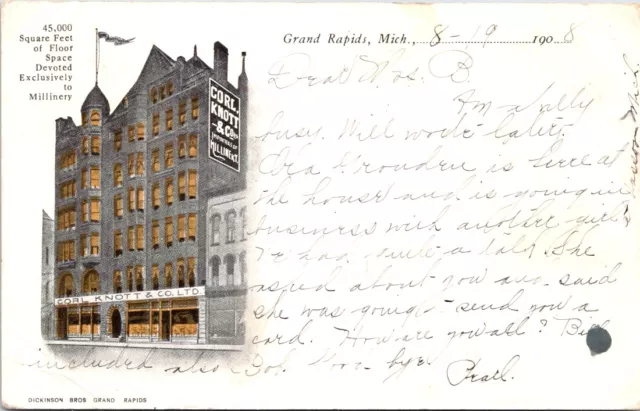 45,000
Square Feet
of Floor
Space
Devoted
Exclusively
to
Millinery
Grand Rapids, Mich., 8-19 1908
CORL,
KNOTT
& CO. LTD.
IMPORTERS OF
MILLINERY.
CORL, KNOTT & CO. LTD.
Dear Mrs. B.
Am awfully
busy. Will write later.
Ora is here at
the house and is going in
business with another girl.
We had quite a talk. She
asked about you and said
she was going to send you a
card. How are you all? Bill
included also Bob. Good bye.
Pearl.
DICKINSON BROS GRAND RAPIDS